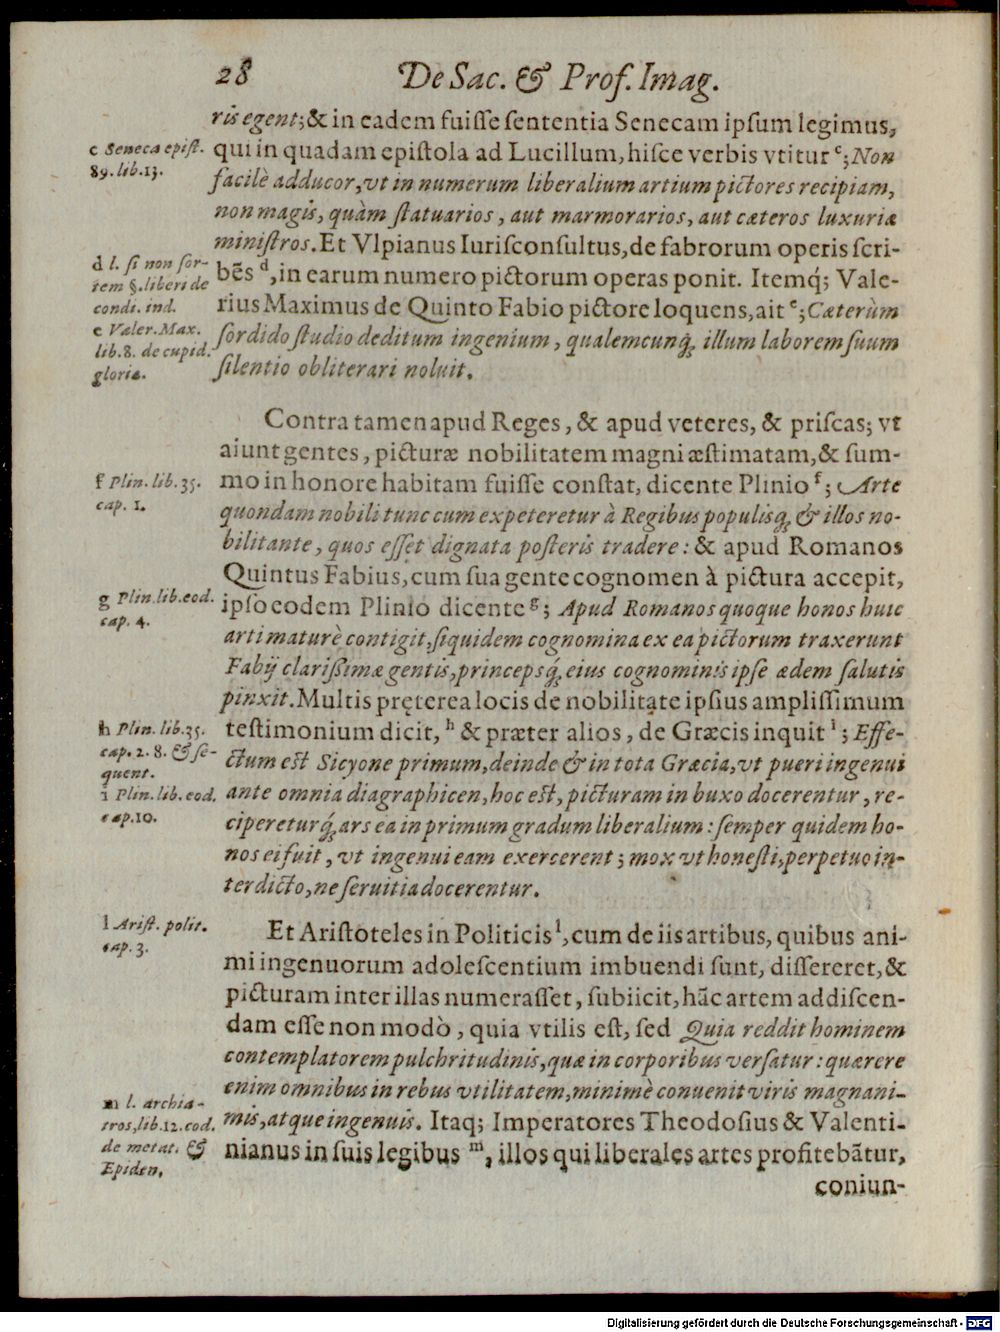 28 De Sac. & Prof. Imag.
ris egent; & in eadem fuiſſe ſententia Senecam ipſum legimus,
qui in quadam epiſtola ad Lucillum, hiſce verbis vtitur c; Non
facilè adducor, vt in numerum liberalium artium pictores recipiam,
non magis, quàm ſtatuarios, aut marmorarios, aut cæteros luxuriæ
miniſtros. Et Vlpianus Iuriſconſultus, de fabrorum operis ſcri-
bēs d, in earum numero pictorum operas ponit. Itemq́; Vale-
rius Maximus de Quinto Fabio pictore loquens, ait e; Cæterùm
ſordido ſtudio deditum ingenium, qualemcunq́; illum laborem ſuum
ſilentio obliterari noluit.
c Seneca epiſt.
89. lib. 13.
d l. ſi non ſor-
tem §. liberi de
condi. ind.
e Valer. Max.
lib. 8. de cupid.
gloriæ.
Contra tamen apud Reges, & apud veteres, & priſcas; vt
aiunt gentes, picturæ nobilitatem magni æſtimatam, & ſum-
mo in honore habitam fuiſſe conſtat, dicente Plinio f; Arte
quondam nobili tunc cum expeteretur à Regibus populisq́; & illos no-
bilitante, quos eſſet dignata poſteris tradere: & apud Romanos
Quintus Fabius, cum ſua gente cognomen à pictura accepit,
ipſo eodem Plinio dicente g; Apud Romanos quoque honos huic
arti maturè contigit, ſiquidem cognomina ex ea pictorum traxerunt
Fabij clariſſimæ gentis, princepsq́; eius cognominis ipſe ædem ſalutis
pinxit. Multis pręterea locis de nobilitate ipſius ampliſſimum
teſtimonium dicit, h & præter alios, de Græcis inquit i; Effe-
ctum eſt Sicyone primum, deinde & in tota Græcia, vt pueri ingenui
ante omnia diagraphicen, hoc eſt, picturam in buxo docerentur, re-
cipereturq́; ars ea in primum gradum liberalium: ſemper quidem ho-
nos ei fuit, vt ingenui eam exercerent; mox vt honeſti, perpetuo in-
terdicto, ne ſeruitia docerentur.
f Plin. lib. 35.
cap. 1.
g Plin. lib. eod.
cap. 4.
h Plin. lib. 35.
cap. 2. 8. & ſe-
quent.
i Plin. lib. eod.
cap. 10.
Et Ariſtoteles in Politicis l, cum de iis artibus, quibus ani-
mi ingenuorum adoleſcentium imbuendi ſunt, diſſereret, &
picturam inter illas numeraſſet, ſubiicit, hāc artem addiſcen-
dam eſſe non modò, quia vtilis eſt, ſed Quia reddit hominem
contemplatorem pulchritudinis, quæ in corporibus verſatur: quærere
enim omnibus in rebus vtilitatem, minimè conuenit viris magnani-
mis, atque ingenuis. Itaq; Imperatores Theodoſius & Valenti-
nianus in ſuis legibus m, illos qui liberales artes profitebātur,
coniun-
l Ariſt. polit.
cap. 3.
m l. archia-
tros, lib. 12. cod.
de metat. &
Epidem.
Digitalisierung gefördert durch die Deutsche Forschungsgemeinschaft - DFG